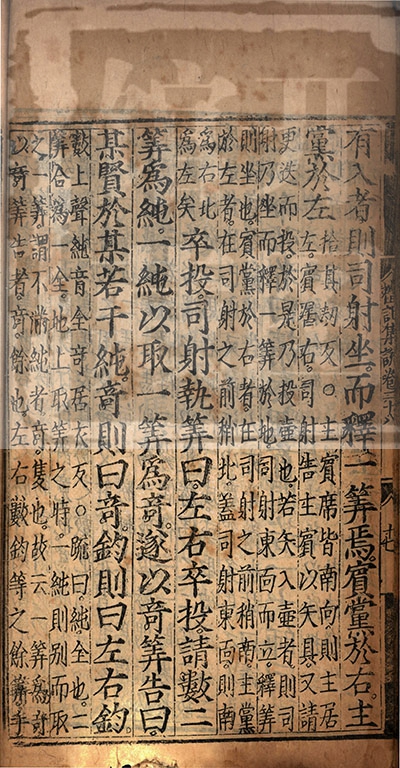 有入者則司射坐而釋一筭焉賓黨於右主
黨於左
拾其劫反○主賓席皆南向則主居
左賓居右司射告主賓以矢具又請
更迭而投於是乃投壺也若矢入壺者則司
射乃坐而釋一筭於地司射東面而立釋筭
則坐也賓黨於右者在司射之前稍南主黨
於左者在司射之前稍北蓋司射東面則南
爲右北
爲左矣
卒投司射執筭曰左右卒投請數二
筭爲純一純以取一筭爲奇遂以奇筭告曰
某賢於某若干純奇則曰奇鈞則曰左右鈞
數上聲純音全奇居衣反○疏曰純全也二
筭合爲一全地上取筭之時一純則別而取
之一筭謂不滿純者奇隻也故云一筭爲奇
以奇筭告者奇餘也左右數鈞等之餘筭手